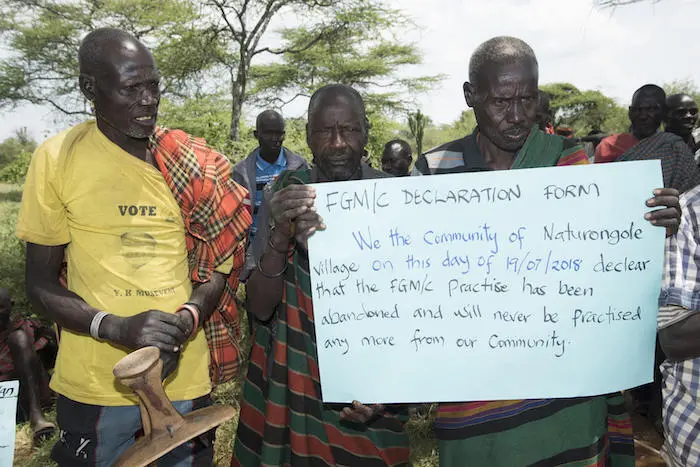 VOTE
Y. K MUSEVENI
FGM/C DECLARATION FORM
We the Community of Naturongole
village on this day of 19/07/2018 declear
that the FGM/C Practise has been
abandoned and will never be practised
any more from our Community.